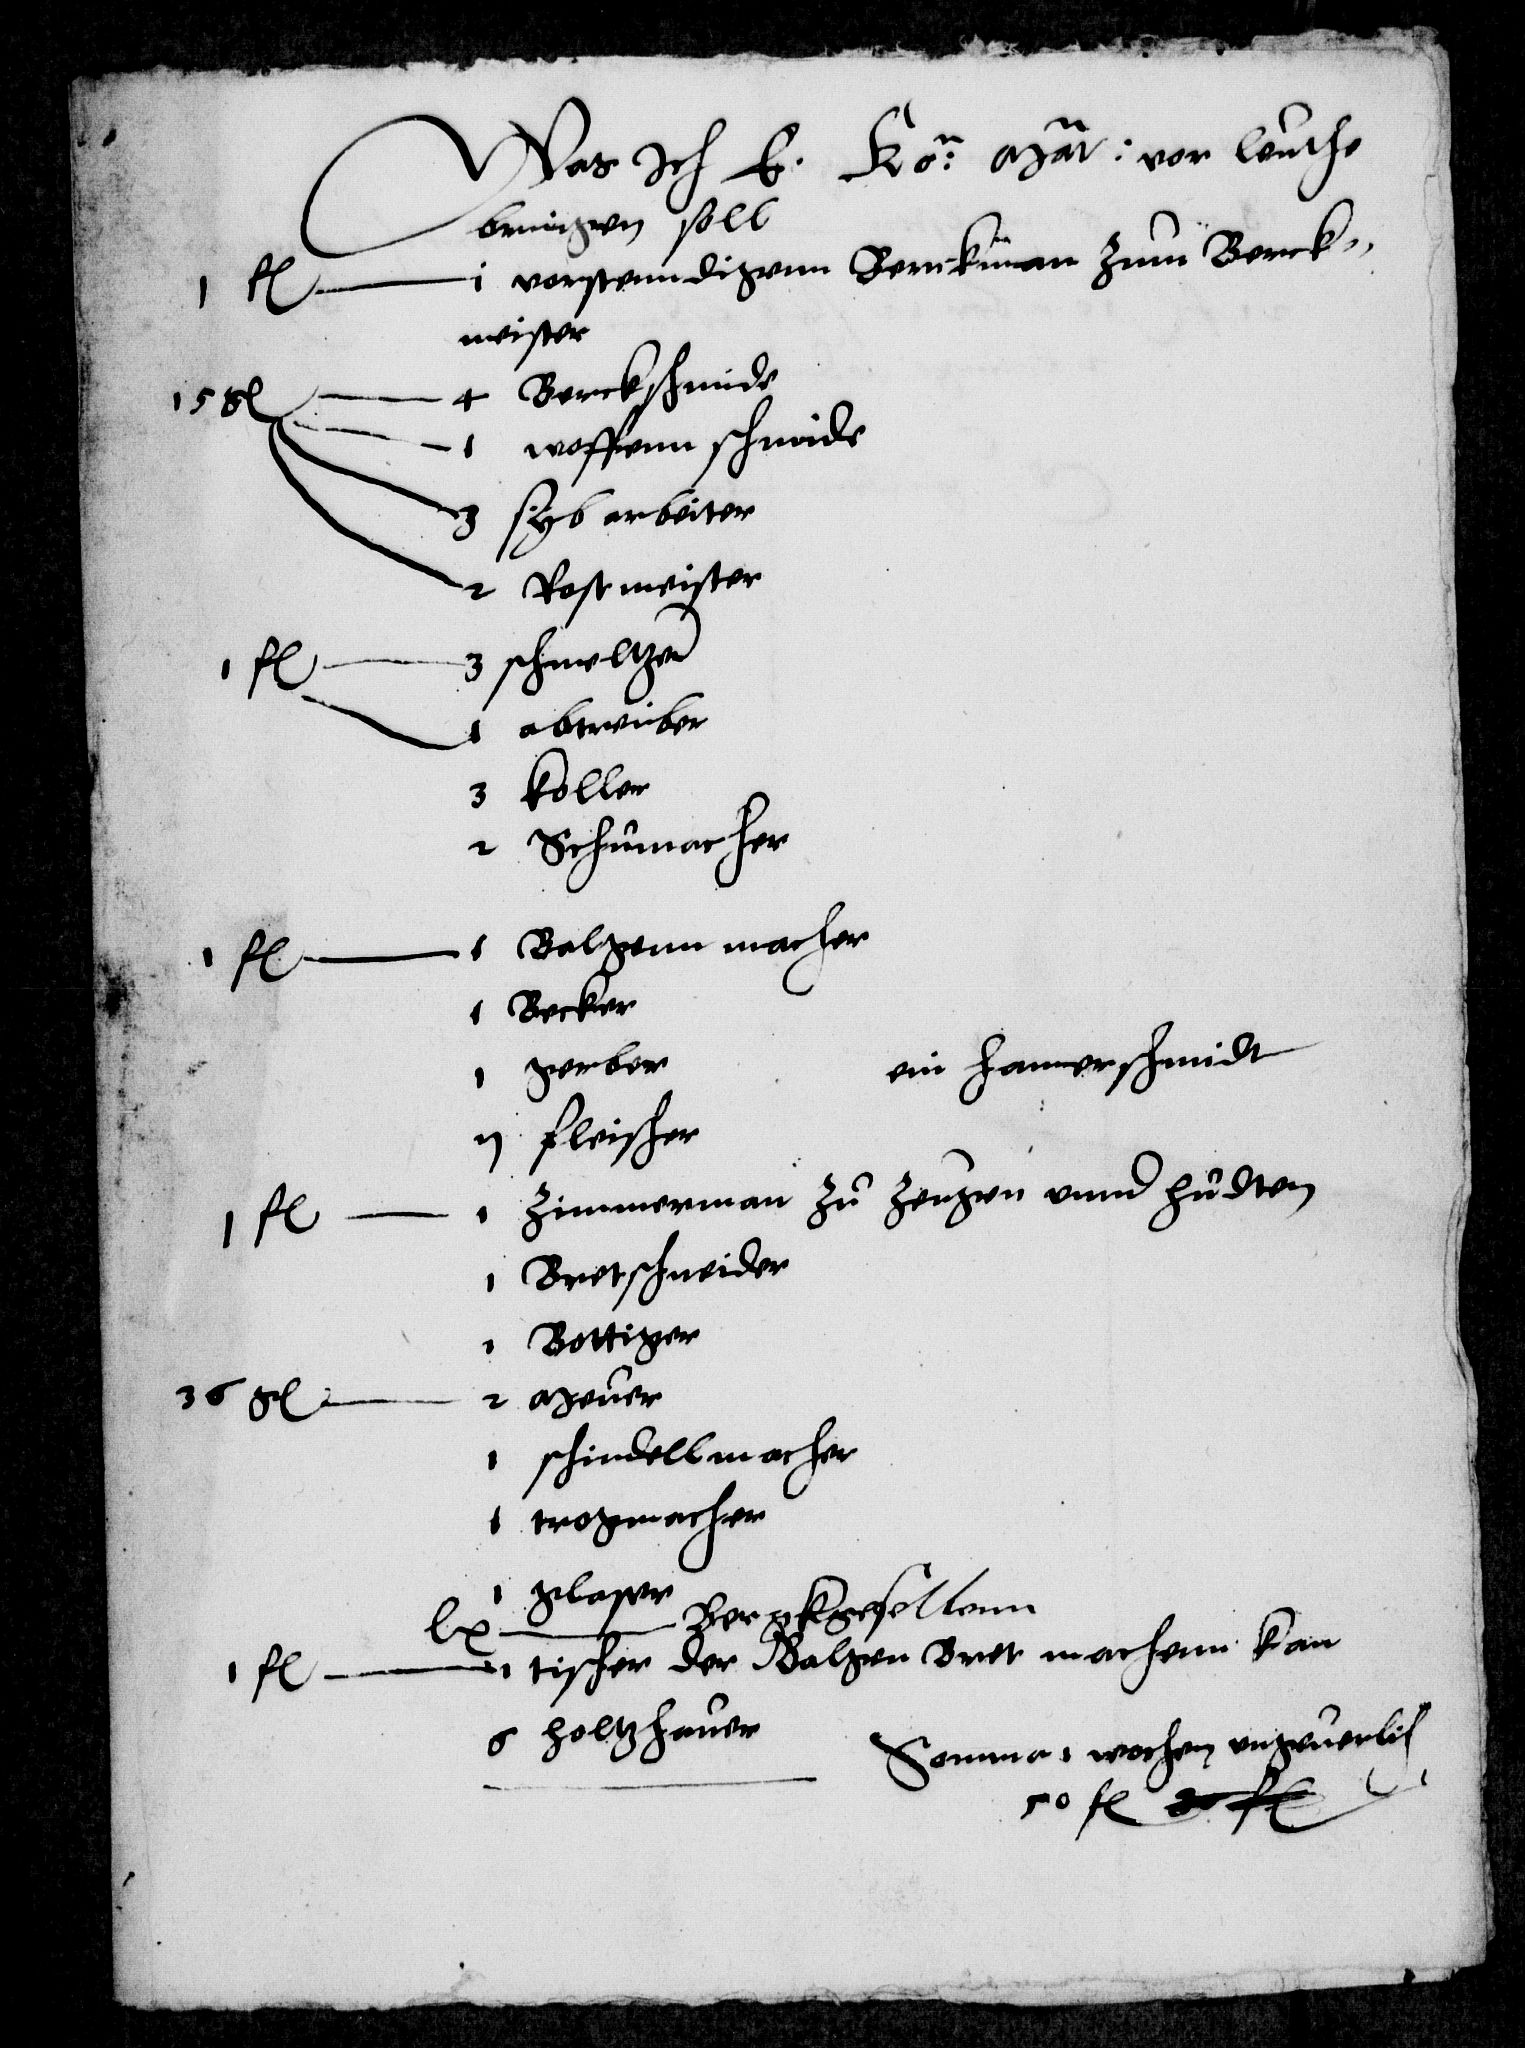 Was Ich E. Kö: Mät: vor leuthe
bringen soll
1 fl — 1 vorstenndigenn Berckman zum Berck-
meister
15 gl — 4 Berckschmide
1 woffenn schmide
3 syb arbeiter
2 Rostmeister
1 fl — 3 schmeltzer
1 abtreiber
3 koller
2 Schumacher
1 fl — 1 Balgenn macher
1 Becker
1 gerber ein hamerschmidt
ij fleischer
1 fl — 1 Zimmerman zu Zeugen vnnd hudten
1 Bretschneider
1 Bottiger
36 gl — 2 Meuer
1 schindellmacher
1 trogmacher
1 glaser
lx — Bergkgesellenn
1 fl — 1 tischer der Balgen Bret machenn kan
6 holtzhauer
Somma 1 wochen vngeuerlich
50 fl